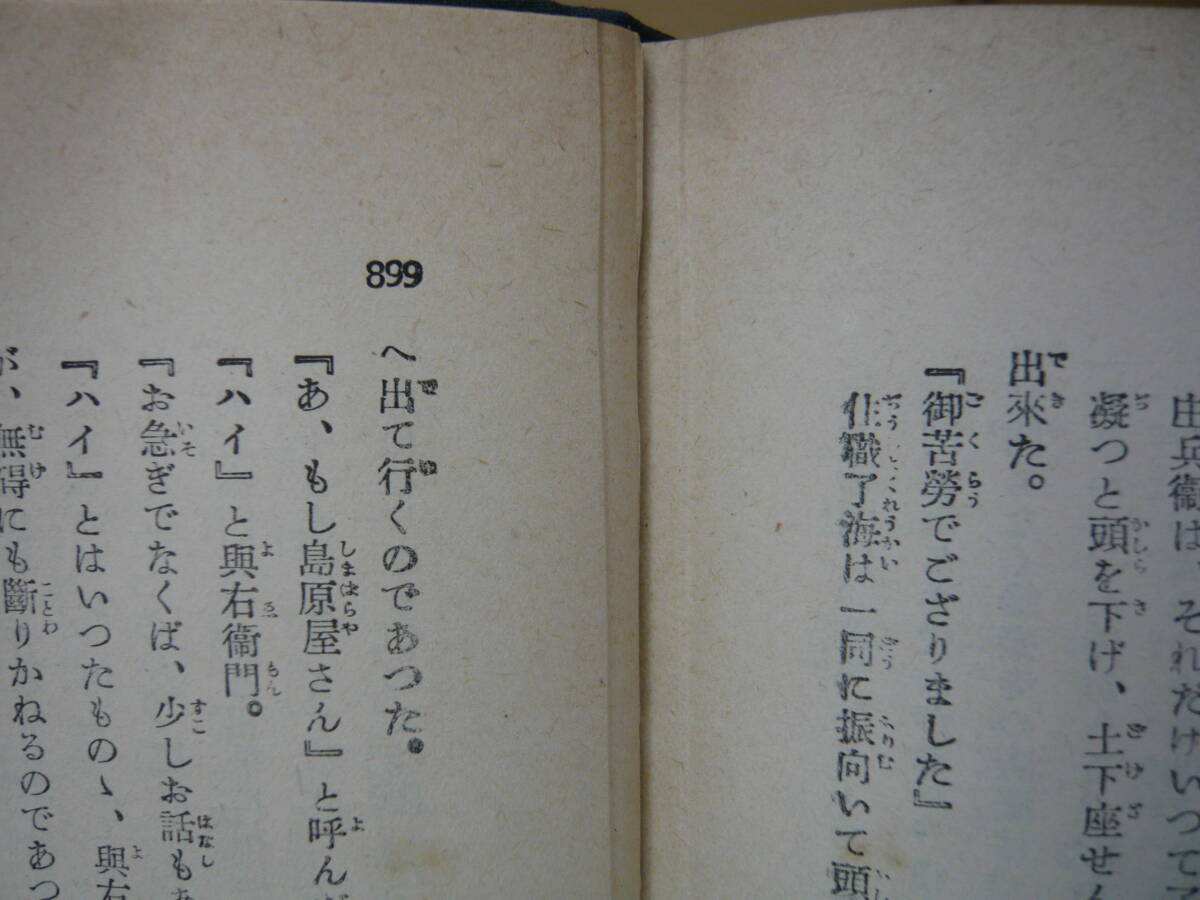 庄兵衞は、それだけいつて
凝つと頭を下げ、土下座せん
出來た。
『御苦勞でござりました』
住職了海は一同に振向いて頭
899
へ出て行くのであつた。
『あ、もし島原屋さん』と呼ん
『ハイ』と與右衞門。
『お急ぎでなくば、少しお話も
『ハイ』とはいつたものゝ、與右
が、無得にも斷りかねるのであつ